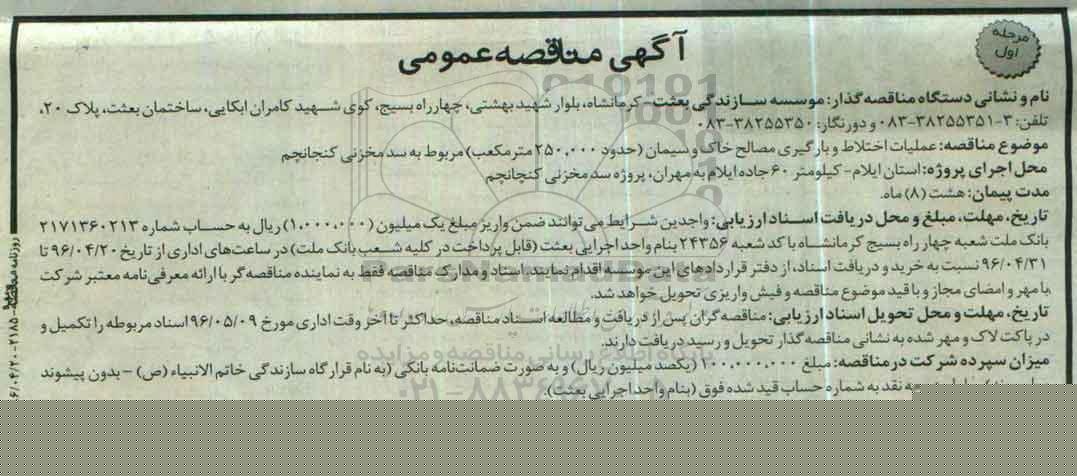 مرحله
اول
آگهی مناقصه عمومی
نام و نشانی دستگاه مناقصه گذار: موسسه سازندگی بعثت- کرمانشاه، بلوار شهید بهشتی، چهارراه بسیج، کوی شهید کامران ابکایی، ساختمان بعثت، پلاک ۲۰،
تلفن: ۳-۳۸۲۵۵۳۵۱-۰۸۳ و دورنگار: ۳۸۲۵۵۳۵۰-۰۸۳
موضوع مناقصه: عملیات اختلاط و بارگیری مصالح خاک و سیمان (حدود ۲۵۰,۰۰۰ مترمکعب) مربوط به سد مخزنی کنجانچم
محل اجرای پروژه: استان ایلام- کیلومتر ۶۰ جاده ایلام به مهران، پروژه سد مخزنی کنجانچم
مدت پیمان: هشت (۸) ماه.
تاریخ، مهلت، مبلغ و محل دریافت اسناد ارزیابی: واجدین شرایط می توانند ضمن واریز مبلغ یک میلیون (۱,۰۰۰,۰۰۰) ریال به حساب شماره ۲۱۷۱۳۶۰۲۱۳
بانک ملت شعبه چهار راه بسیج کرمانشاه با کد شعبه ۲۴۳۵۶ بنام واحد اجرایی بعثت (قابل پرداخت در کلیه شعب بانک ملت) در ساعت‌های اداری از تاریخ ۹۶/۰۴/۲۰ تا
۹۶/۰۴/۳۱ نسبت به خرید و دریافت اسناد، از دفتر قراردادهای این موسسه اقدام نمایند. اسناد و مدارک مناقصه فقط به نماینده مناقصه گر با ارائه معرفی نامه معتبر شرکت
با مهر و امضای مجاز و با قید موضوع مناقصه و فیش واریزی تحویل خواهد شد.
تاریخ، مهلت و محل تحویل اسناد ارزیابی: مناقصه گران پس از دریافت و مطالعه اسناد مناقصه، حداکثر تا آخر وقت اداری مورخ ۹۶/۰۵/۰۹ اسناد مربوطه را تکمیل و
در پاکت لاک و مهر شده به نشانی مناقصه گذار تحویل و رسید دریافت دارند.
میزان سپرده شرکت در مناقصه: مبلغ ۱۰۰,۰۰۰,۰۰۰ (یکصد میلیون ریال) و به صورت ضمانت‌نامه بانکی (به نام قرارگاه سازندگی خاتم الانبیاء (ص) - بدون پیشوند
نقد به شماره حساب قید شده فوق (بنام واحد اجرایی بعثت).
ParsNamadData
پایگاه اطلاع رسانی مناقصه و مزایده